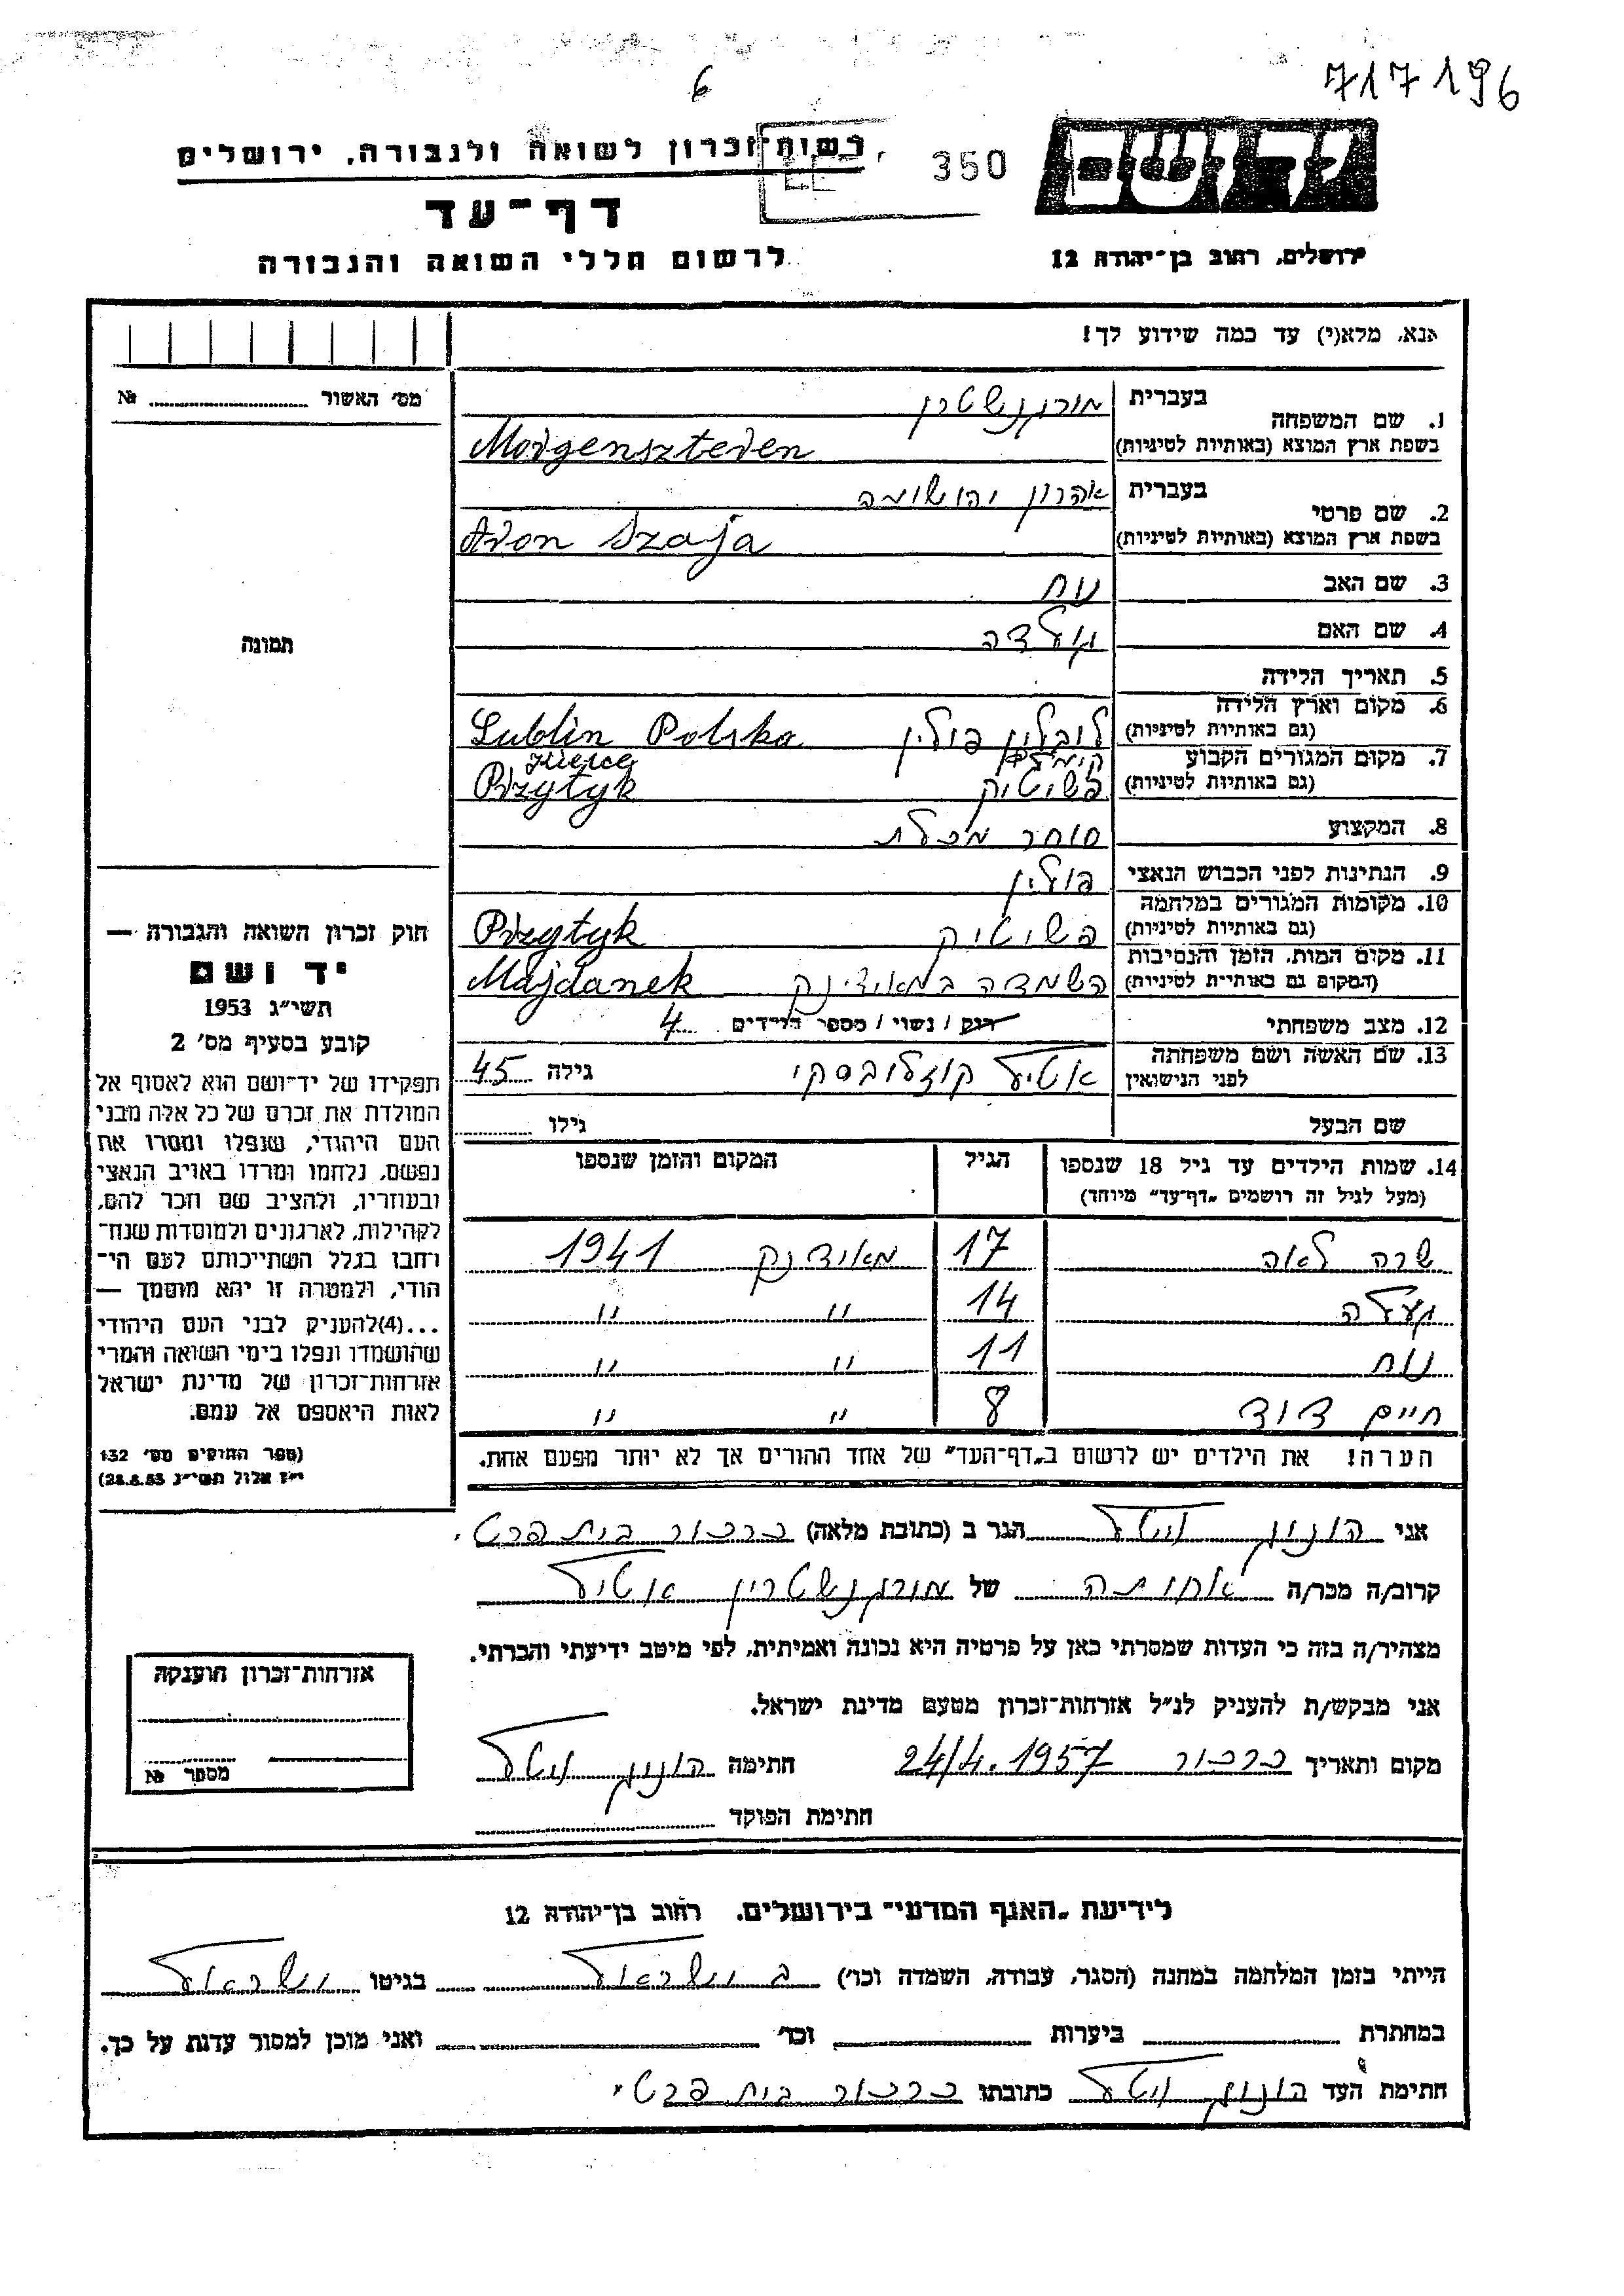 6
717196
רשות־זכרון לשואה ולגבורה, ירושלים
350
דף־עד
ירושלים, רחוב בן־יהודה 12
לרשום חללי השואה והגבורה
אנא, מלא(י) עד כמה שידוע לך!
מס׳ האשור № ........
1. שם המשפחה
בעברית מורגנשטרן
בשפת ארץ המוצא (באותיות לטיניות) Morgenszteren
2. שם פרטי
בעברית אהרון יהושועה
בשפת ארץ המוצא (באותיות לטיניות) Aron Szaja
3. שם האב נוח
4. שם האם
תמונה
5. תאריך הלידה
6. מקום וארץ הלידה
(גם באותיות לטיניות) לובלין פולין Lublin Polska
7. מקום המגורים הקבוע
(גם באותיות לטיניות) פשיטיק Przytyk
8. המקצוע סוחר מכלת
9. הנתינות לפני הכבוש הנאצי פולין
10. מקומות המגורים במלחמה
(גם באותיות לטיניות) פשיטיק Przytyk
11. מקום המות, הזמן והנסיבות
(המקום גם באותיות לטיניות) השמדה במאידינק Majdanek
12. מצב משפחתי רווק / נשוי / מספר הילדים 4
13. שם האשה ושם משפחתה
לפני הנישואין אטיל קוזלובסקי גילה 45
שם הבעל גילו
חוק זכרון השואה והגבורה —
יד ושם
תשי״ג 1953
קובע בסעיף מס׳ 2
תפקידו של יד־ושם הוא לאסוף אל
המולדת את זכרם של כל אלה מבני
העם היהודי, שנפלו ומסרו את
נפשם, נלחמו ומרדו באויב הנאצי
ובעוזריו, ולהציב שם וזכר להם,
לקהילות, לארגונים ולמוסדות שנח־
רבו בגלל השתייכותם לעם הי־
הודי, ולמטרה זו יהא מוסמך —
...(4)להעניק לבני העם היהודי
שהושמדו ונפלו בימי השואה והמרי
אזרחות־זכרון של מדינת ישראל
לאות היאספם אל עמם.
(ספר החוקים מס׳ 132
י״ז אלול תשי״ג 28.8.53)
14. שמות הילדים עד גיל 18 שנספו הגיל המקום והזמן שנספו
(מעל לגיל זה רושמים „דף־עד״ מיוחד)
שרה לאה 17 מאידנק 1941
14 ״ ״
נוח 11 ״ ״
חיים דוד 8 ״ ״
הערה! את הילדים יש לרשום ב„דף־העד״ של אחד ההורים אך לא יותר מפעם אחת.
אני הגר ב (כתובת מלאה) כרכור בית פרטי
קרוב/ה מכר/ה אחותה של מורגנשטרין אטיל
מצהיר/ה בזה כי העדות שמסרתי כאן על פרטיה היא נכונה ואמיתית, לפי מיטב ידיעתי והכרתי.
אני מבקש/ת להעניק לנ״ל אזרחות־זכרון מטעם מדינת ישראל.
מקום ותאריך כרכור 24/4.1957 חתימה
חתימת הפוקד
אזרחות־זכרון הוענקה
מספר №
לידיעת „האגף המדעי״ בירושלים, רחוב בן־יהודה 12
הייתי בזמן המלחמה במחנה (הסגר, עבודה, השמדה וכו׳) בגיטו
במחתרת ביערות וכו׳ ואני מוכן למסור עדות על כך.
חתימת העד כתובתו כרכור בית פרטי